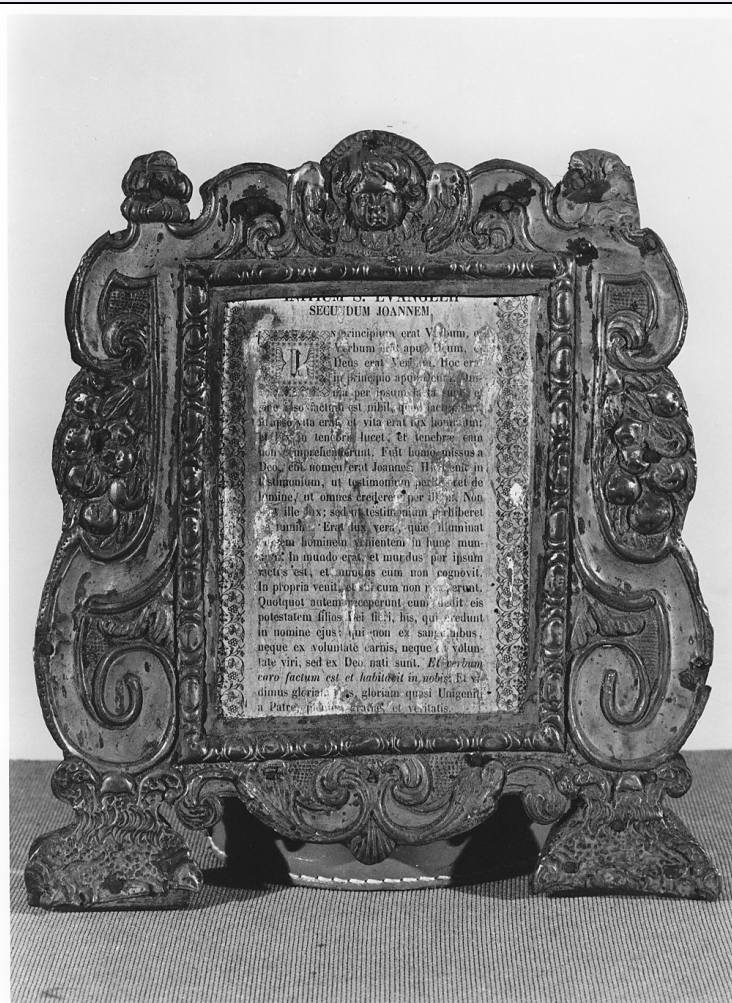 INITIUM S. EVANGELII
SECUNDUM JOANNEM,
principium erat Verbum, e
Verbum erat apud Deum,
Deus erat Verbum. Hoc erat
in principio apud
per ipsum
factum est nihil, quod
vita erat, et vita erat lux hominum:
in tenebris lucet, et tenebræ eam
non comprehenderunt. Fuit homo missus a
Deo, cui nomen erat Joannes. Hic venit in
testimonium, ut testimonium perhiberet de
lumine, ut omnes crederent per illum. Non
ille lux; sed ut testimonium perhiberet
lumine. Erat lux vera, quæ illuminat
hominem venientem in hunc mun-
In mundo erat, et mundus per ipsum
factus est, et mundus eum non cognovit.
In propria venit, et sui eum non receperunt.
Quotquot autem receperunt eum, dedit eis
potestatem filios Dei fieri, his, qui credunt
in nomine ejus: qui non ex sanguinibus,
neque ex voluntate carnis, neque volun-
tate viri, sed ex Deo nati sunt. Et verbum
caro factum est et habitavit in nobis: Et vi-
dimus gloriam ejus, gloriam quasi Unigeniti
a Patre, gratiæ et veritatis.